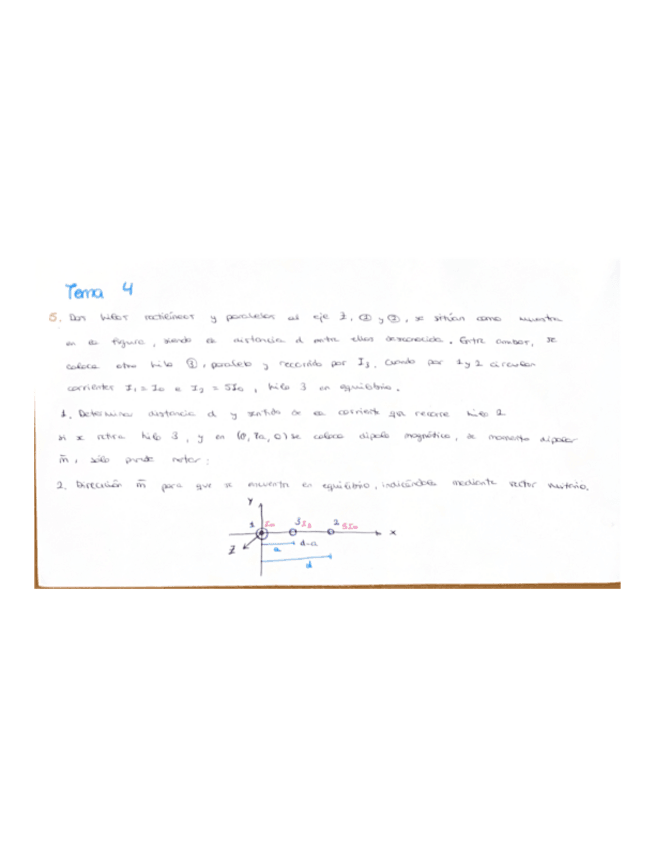 Tema 4
5. Dos hilos rectilíneos y paralelos al eje Z, ① y ②, se sitúan como muestra
en la figura, siendo la distancia d entre ellos desconocida. Entre ambos, se
coloca otro hilo ③, paralelo y recorrido por I3. Cuando por 1 y 2 circulan
corrientes I1 = I0 e I2 = 5I0, hilo 3 en equilibrio.
1. Determinar distancia d y sentido de la corriente que recorre hilo 2
si se retira hilo 3, y en (0, 7a, 0) se coloca dipolo magnético, de momento dipolar
m̄, sólo puede rotar:
2. Dirección m̄ para que se encuentre en equilibrio, indicándola mediante vector unitario.
Y
1 I0 3 I3 2 5I0
X
Z
a d-a
d